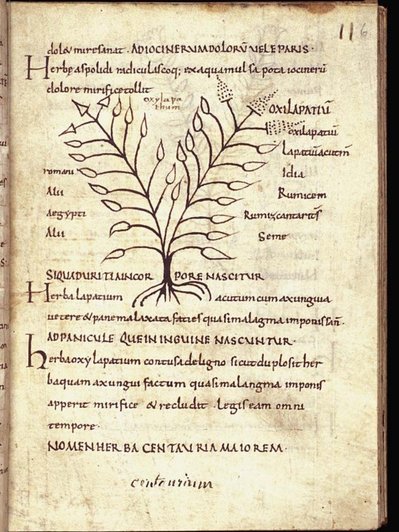 116
dolos mire sanat. AD IOCINERUM DOLORŨ VEL EPARIS.
Herbe aspolidi radiculas coq; ex aqua mulsa pota iocinerũ
dolore mirifice tollit
oxylapa
thum
OXILAPATIUM̃
oxilapatiũ
Lapatiũ acutum
romani
Idia
Alii
Rumicem
aegypti
Rumix cantarites
Alii
Seme
SI QUA DURITIA IN CORPORE NASCITUR
Herba lapatium acutum cum axungia
vetere & pane malaxata facies quasi malagma imponis san.
AD PANICULE QUE IN INGUINE NASCUNTUR.
herba oxylapatium contusa de ligno sicut duplosit her
ba quam axungui factum quasi malangma imponis
apperit mirifice & recludit. legis eam omni
tempore.
NOMEN HERBA CENTAURIA MAIOREM.
centaurium